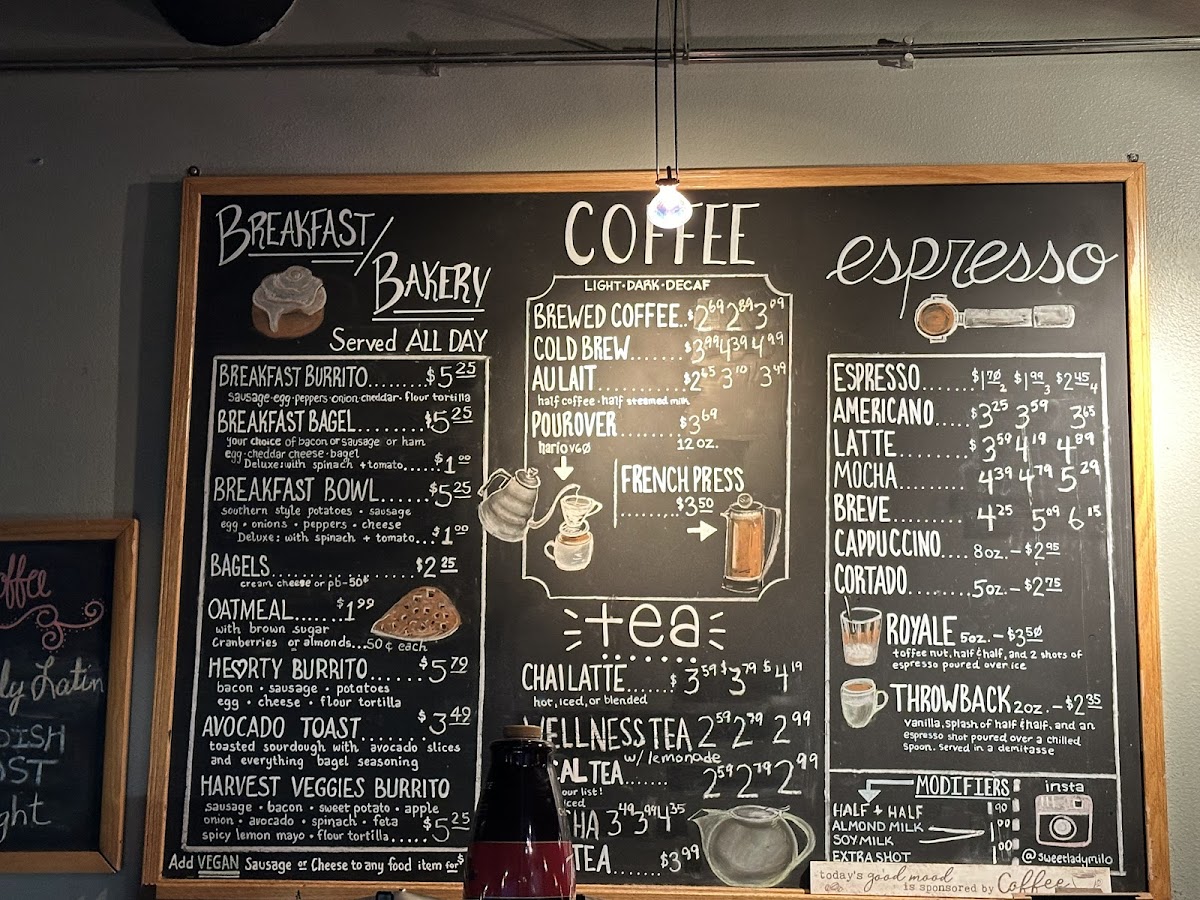 BREAKFAST/
BAKERY
Served ALL DAY
BREAKFAST BURRITO........$5 25
sausage·egg·peppers·onion·cheddar·flour tortilla
BREAKFAST BAGEL........$5 25
your choice of bacon or sausage or ham
egg·cheddar cheese·bagel
Deluxe: with spinach + tomato.....$1 00
BREAKFAST BOWL......$5 25
southern style potatoes · sausage
egg · onions · peppers · cheese
Deluxe: with spinach + tomato...$1 00
BAGELS....................$2 25
cream cheese or pb-50¢
OATMEAL.......$1 99
with brown sugar
Cranberries or almonds...50¢ each
HE♡RTY BURRITO........$5 79
bacon · sausage · potatoes
egg · cheese · flour tortilla
AVOCADO TOAST.......$3 49
toasted sourdough with avocado slices
and everything bagel seasoning
HARVEST VEGGIES BURRITO
sausage · bacon · sweet potato · apple
onion · avocado · spinach · feta
spicy lemon mayo · flour tortilla.....$5 25
Add VEGAN Sausage or Cheese to any food item for $
COFFEE
LIGHT·DARK·DECAF
BREWED COFFEE..$2 69 2 89 3 09
COLD BREW.......$3 99 4 39 4 99
AU LAIT...........$2 65 3 10 3 49
half coffee·half steamed milk
POUROVER..........$3 69
hario v60
12 oz.
FRENCH PRESS
.........$3 50
tea
CHAI LATTE......$3 59 $3 79 $4 19
hot, iced, or blended
WELLNESS TEA 2 59 2 79 2 99
w/ lemonade
AL TEA...... 2 59 2 79 2 99
our list!
iced
CHA 3 49 3 99 4 35
TEA......$3 99
espresso
ESPRESSO......$1 70 2 $1 99 3 $2 45 4
AMERICANO....$3 25 3 59 3 65
LATTE...........$3 59 4 19 4 89
MOCHA.......... 4 39 4 79 5 29
BREVE........... 4 25 5 09 6 15
CAPPUCCINO....8oz.–$2 95
CORTADO..........5oz.–$2 75
ROYALE 5oz.–$3 50
toffee nut, half & half, and 2 shots of
espresso poured over ice
THROWBACK 2oz.–$2 35
vanilla, splash of half & half, and an
espresso shot poured over a chilled
spoon. served in a demitasse
MODIFIERS
HALF + HALF .90
ALMOND MILK 1 00
SOY MILK
EXTRA SHOT 1 00
insta
@sweetladymilo
today's good mood
is sponsored by Coffee
offee
ly Latin
DISH
ST
ght